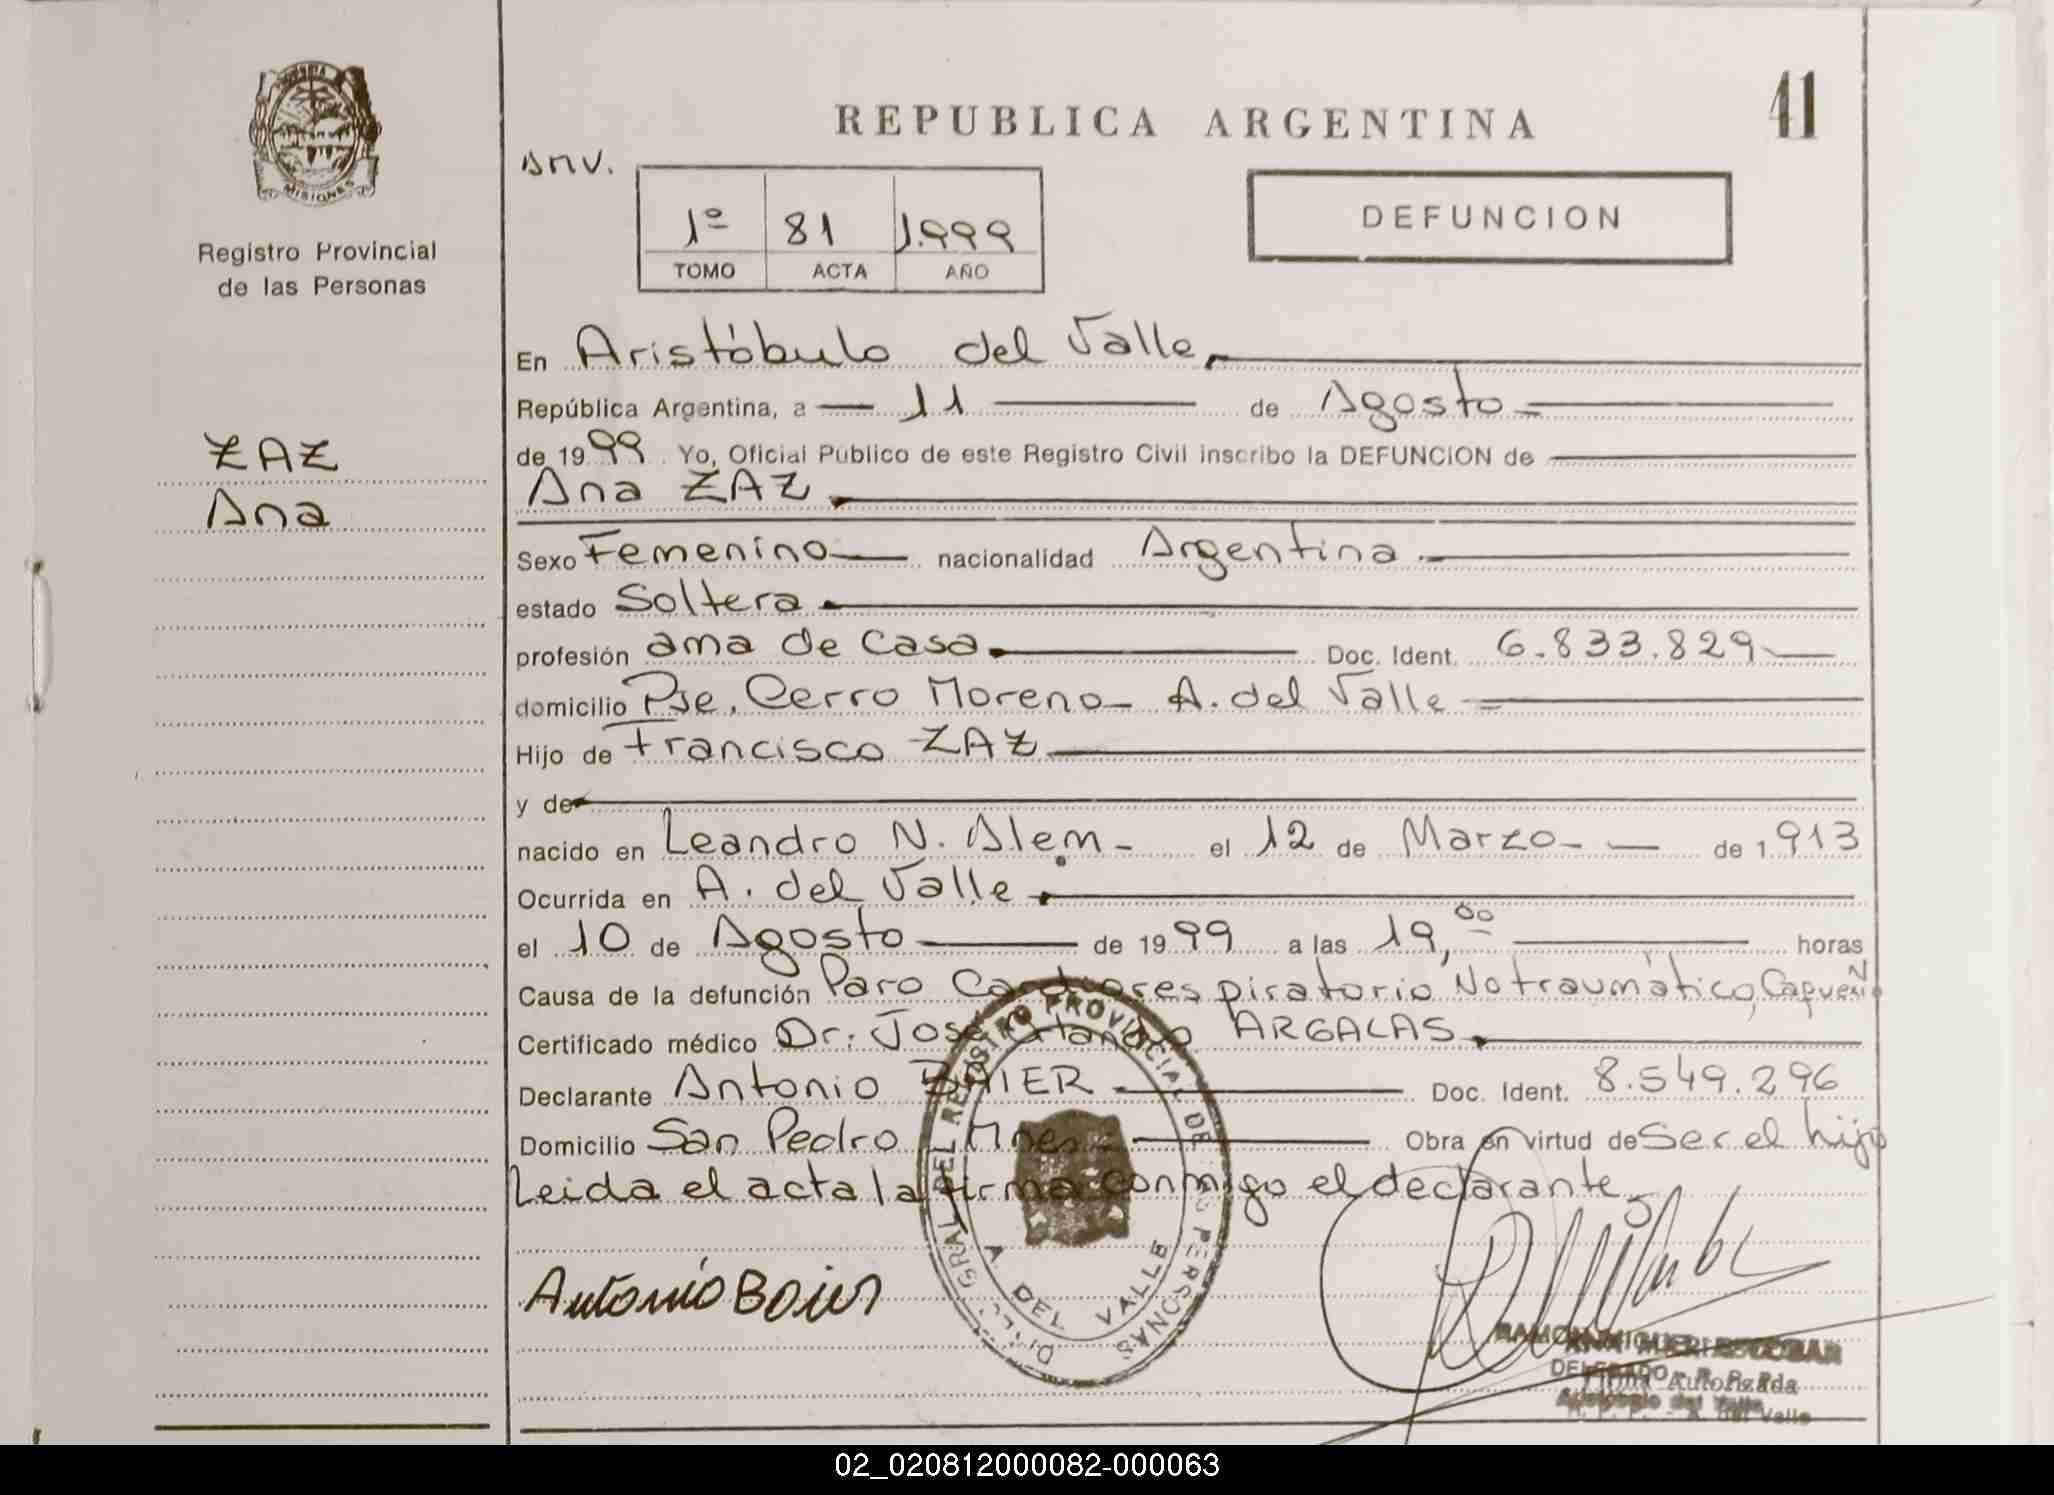 REPUBLICA ARGENTINA
41
MISIONES
Registro Provincial
de las Personas
1º 81 1.999
TOMO ACTA AÑO
DEFUNCION
ZAZ
Ana
En Aristóbulo del Valle
República Argentina, a 11 de Agosto
de 1999. Yo, Oficial Público de este Registro Civil inscribo la DEFUNCION de
Ana ZAZ
Sexo Femenino nacionalidad Argentina
estado Soltera
profesión ama de casa Doc. Ident. 6.833.829
domicilio Pje. Cerro Moreno - A. del Valle
Hijo de Francisco ZAZ
y de
nacido en Leandro N. Alem - el 12 de Marzo - de 1.913
Ocurrida en A. del Valle
el 10 de Agosto de 1999 a las 19,00 horas
Causa de la defunción Paro Cardiorespiratorio No traumático,
Certificado médico Dr: José ARGALAS
Declarante Antonio BAIER Doc. Ident. 8.549.296
Domicilio San Pedro Mnes Obra en virtud de Ser el hijo
Leida el acta la firma conmigo el declarante
Antonio Baier
DEL REGISTRO PROVINCIAL DE LAS PERSONAS
A DEL VALLE
02_020812000082-000063